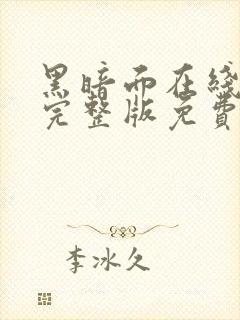 黑暗而在綫
完整版免費
李冰久